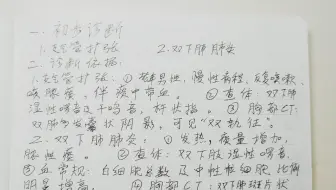 一. 初步诊断
1. 支气管扩张 2. 双下肺肺炎
二. 诊断依据
1. 支气管扩张: ① 老年男性, 慢性病程, 反复咳嗽、
咳脓痰, 伴痰中带血。 ② 查体: 双下肺
湿性啰音及干啰音, 杵状指。 ③ 胸部CT:
双肺多发囊状阴影, 可见“双轨征”。
2. 双下肺肺炎: ① 发热, 痰量增加,
脓性痰。 ② 查体: 双下肢湿性啰音。
③ 血常规: 白细胞总数及中性粒细胞比例
明显增高。 ④ 胸部CT: 双下肺斑片状